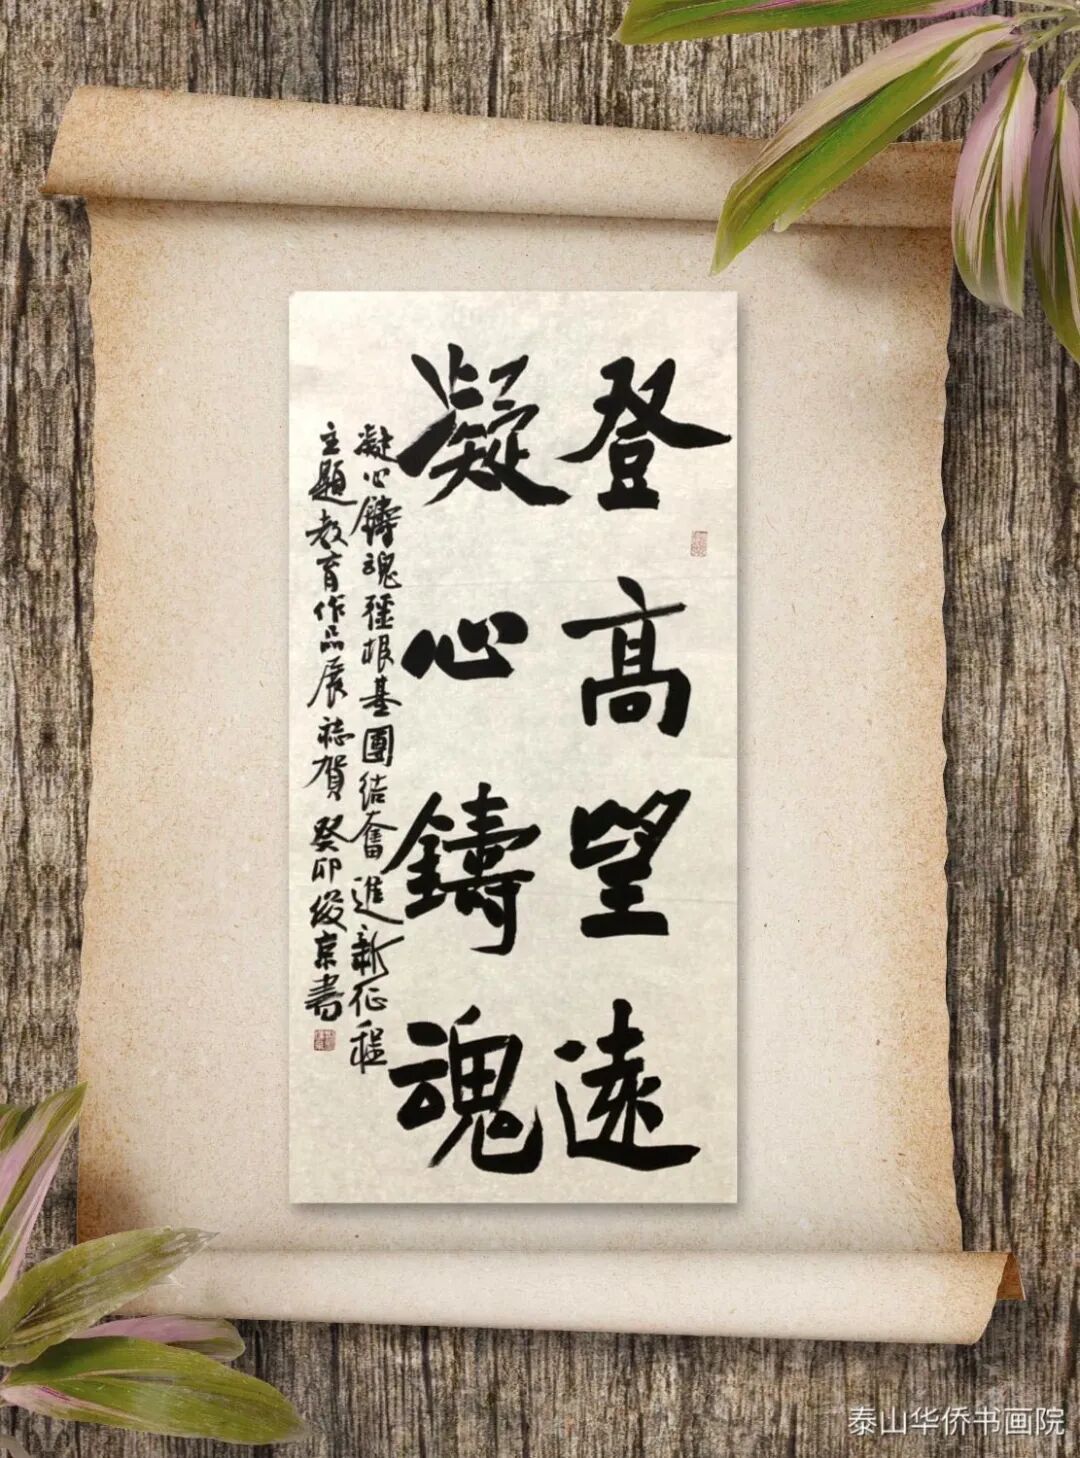 登高望远
凝心鑄魂
凝心鑄魂強根基團結奮進新征程
主題教育作品展誌賀 癸卯俊京書
泰山华侨书画院